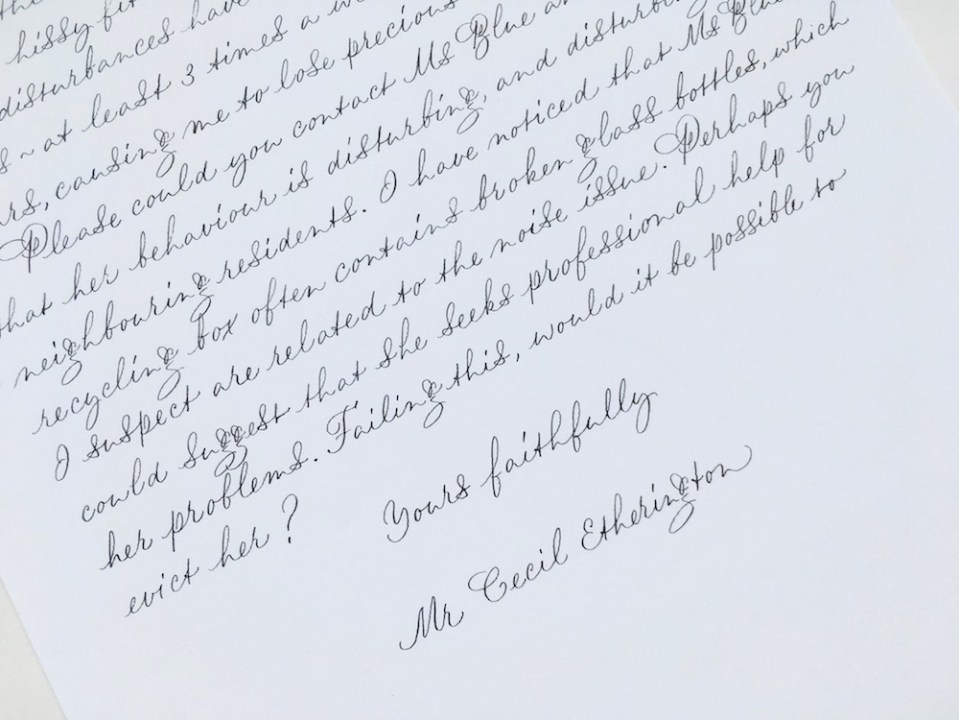 hissy fit
disturbances have
~ at least 3 times a
causing me to lose precious
Please could you contact Ms Blue
that her behaviour is disturbing, and disturbing
neighbouring residents. I have noticed that Ms Blue
recycling box often contains broken glass bottles, which
I suspect are related to the noise issue. Perhaps you
could suggest that she seeks professional help for
her problems. Failing this, would it be possible to
evict her?
Yours faithfully
Mr Cecil Etherington